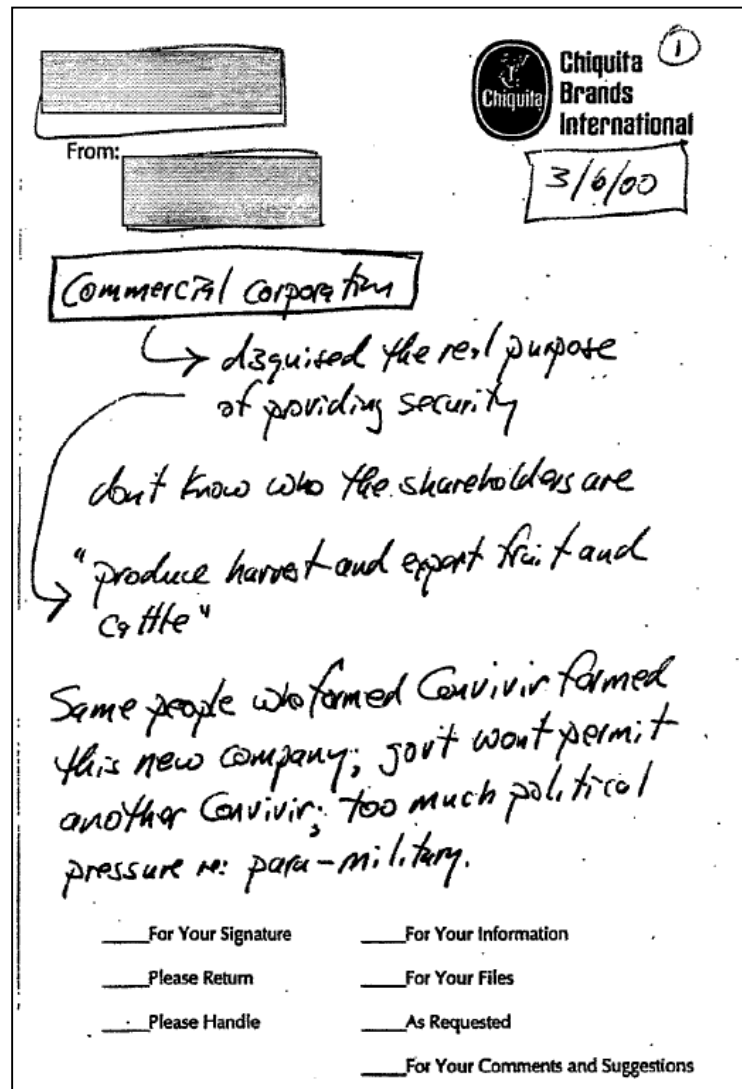 1
Chiquita
Chiquita
Brands
International
From:
3/6/00
Commercial Corporation
disguised the real purpose
of providing security
don't know who the shareholders are
"produce harvest and export fruit and
cattle"
Same people who formed Convivir formed
this new company; gov't won't permit
another Convivir; too much political
pressure re: para-military.
____For Your Signature ____For Your Information
____Please Return ____For Your Files
____Please Handle ____As Requested
____For Your Comments and Suggestions